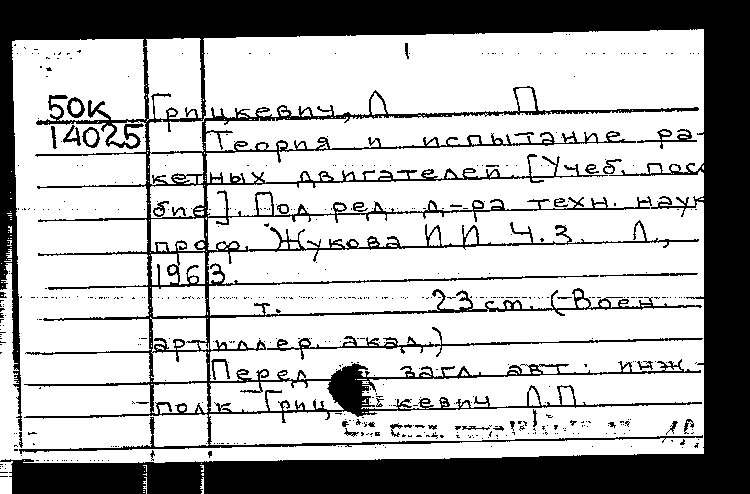 1
50к Грицкевич, Л П
14025 Теория и испытание ра-
кетных двигателей. [Учеб. посо
бие]. Под ред. д-ра техн. наук
проф. Жукова И.И. Ч.3. Л.,
1963.
т. 23 см. (Воен.
артиллер. акад.)
Перед загл. авт.: инж.-
полк. Грицкевич Л.П.